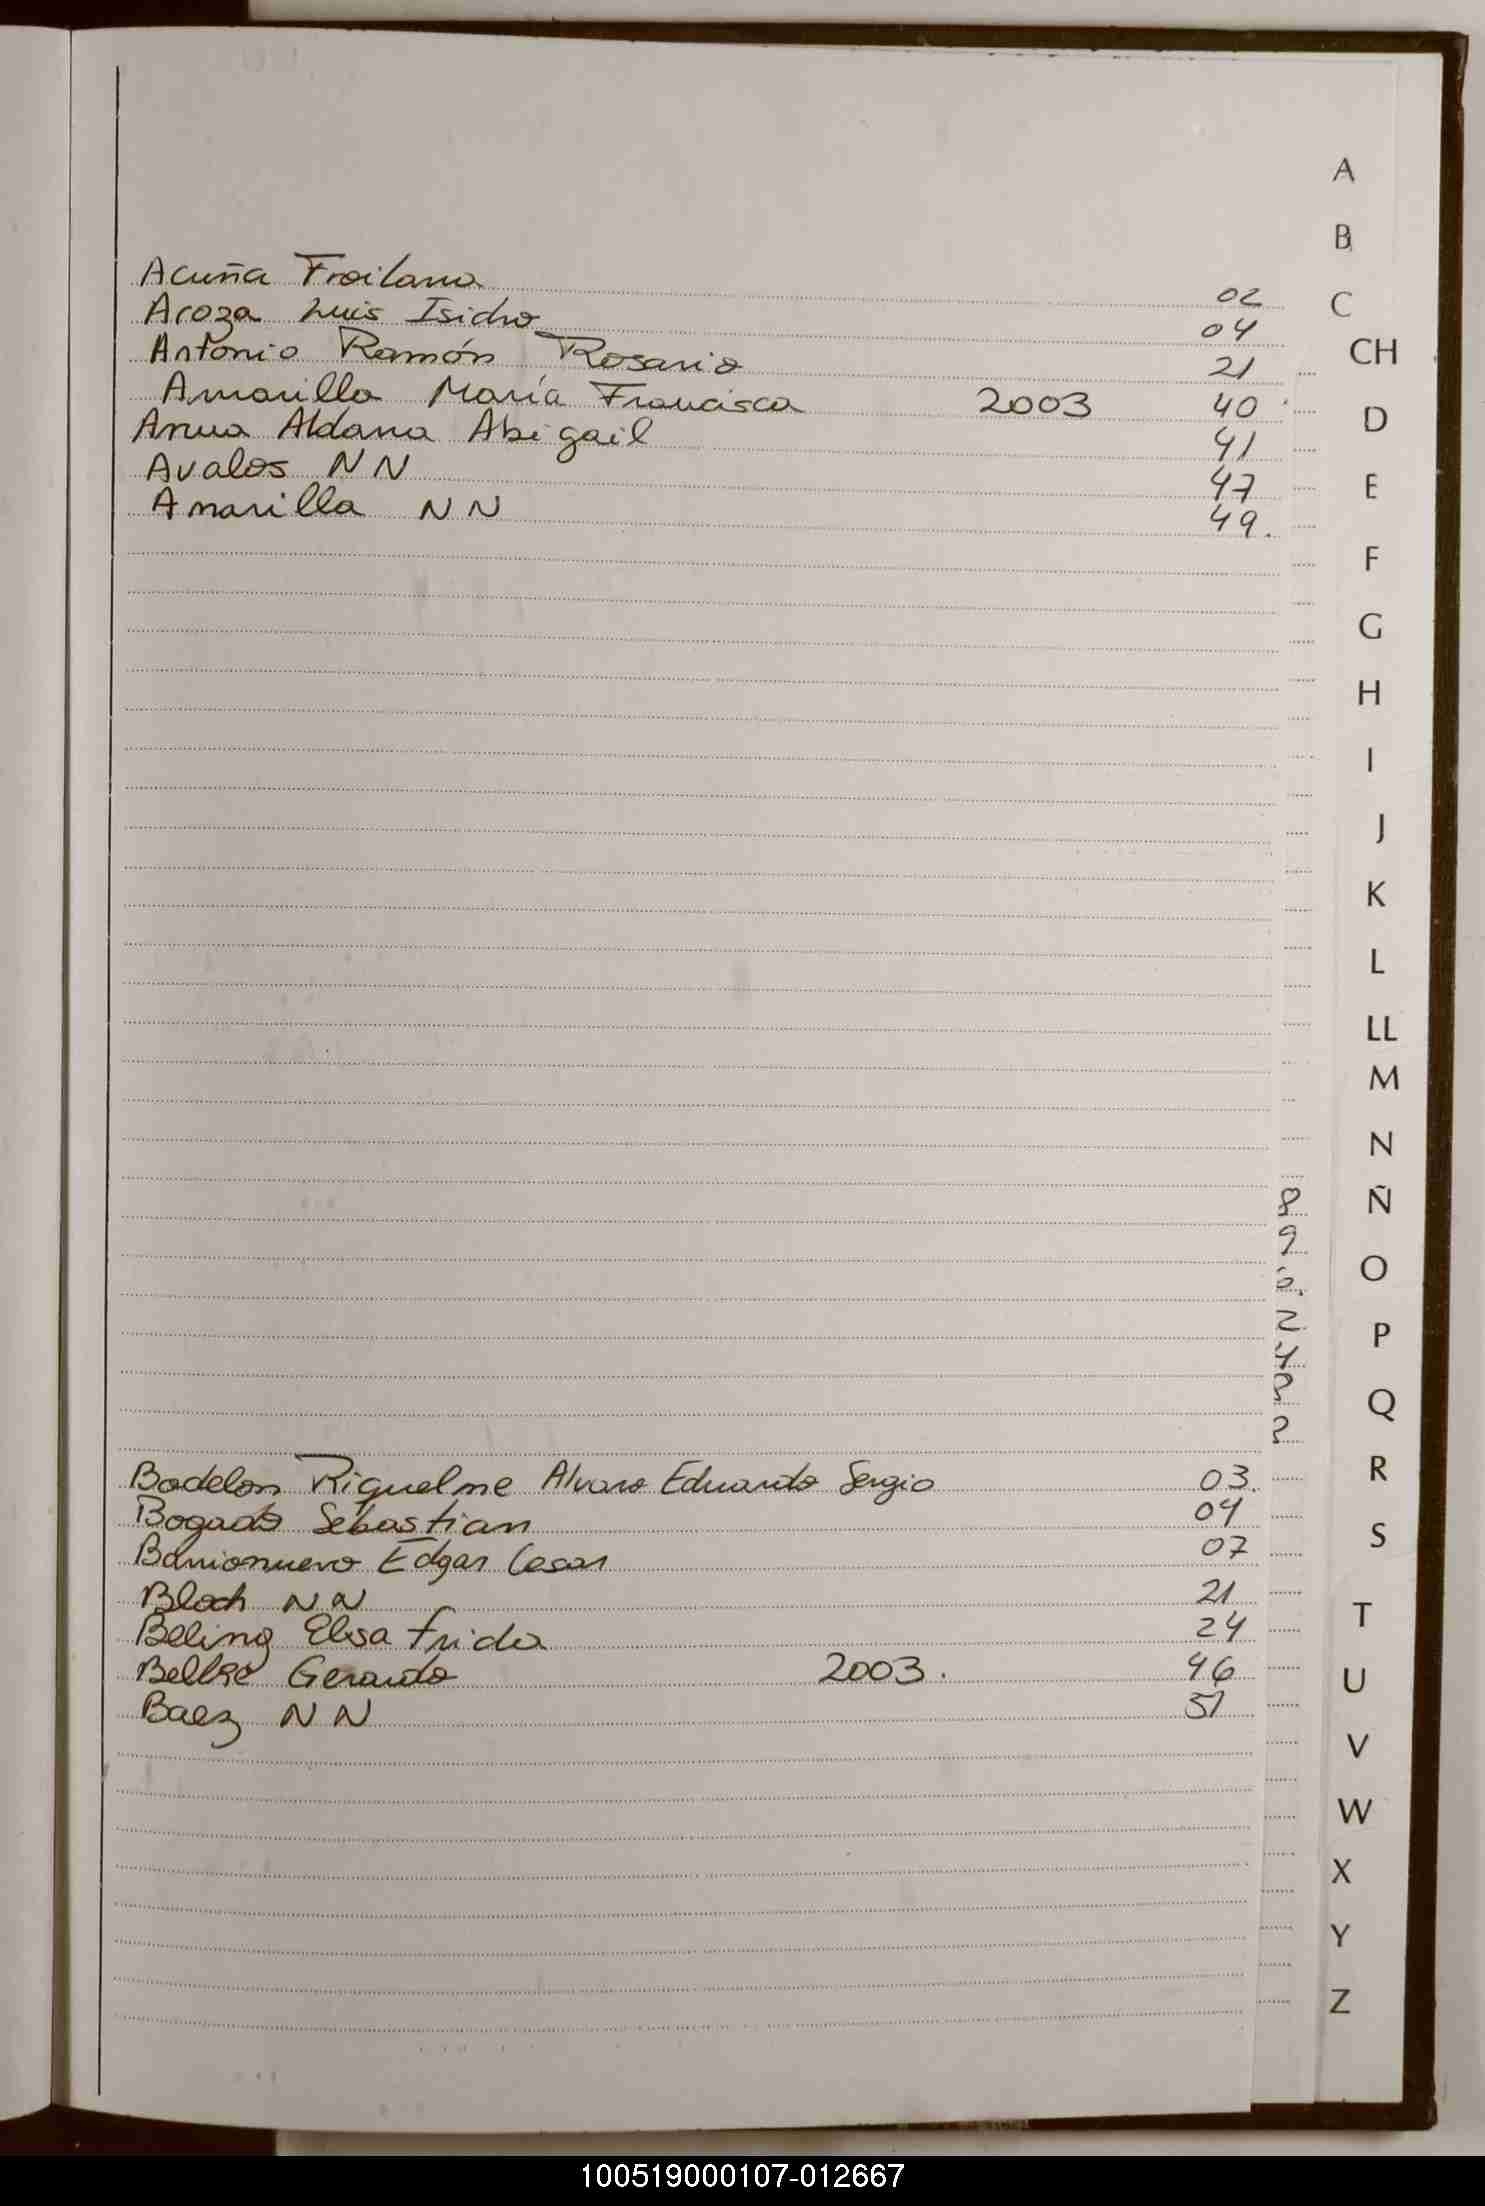 A
B
Acuña Froilana 02
C
Acoza Luis Isidro 04
CH
Antonio Ramón Rosario 21
Amarilla María Francisca 2003 40
D
Arrua Aldana Abigail 41
Avalos NN 47
E
Amarilla NN 49.
F
G
H
I
J
K
L
LL
M
N
8
Ñ
9
O
2
P
Q
Bodelon Riquelme Alvaro Eduardo Sergio 03.
R
Bogado Sebastian 04
S
Barrionuevo Edgar Cesar 07
Bloch NN 21
T
Beling Elsa Frida 24
2003. 46
Gerardo
U
Baez NN 51
V
W
X
Y
Z
100519000107-012667